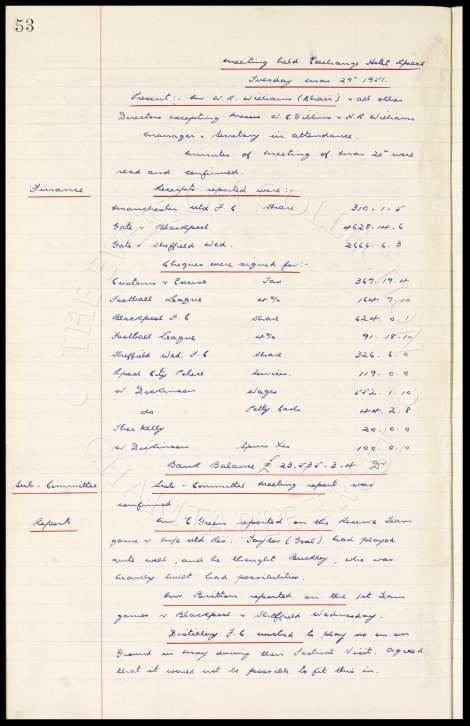 53
Meeting held Exchange Hotel Lpool
Tuesday Mar 27th 1951.
Present:- Mr W. R. Williams (Chair) & all other
Directors excepting Messrs W. C. Gibbins & H. R. Williams
Manager & Secretary in attendance.
Minutes of meeting of Mar 20th were
read and confirmed.
Finance Receipts reported were:-
Manchester Utd F. C. Share 310 . 1 . 5
Gate v Blackpool 4628 . 14 . 6
Gate v Sheffield Wed. 2666 . 6 . 3
Cheques were signed for:-
Customs & Excise Tax 367 . 19 . 4
Football League 4% 164 . 7 . 10
Blackpool F. C Share 624 . 0 . 1
Football League 4% 91 . 18 . 10
Sheffield Wed. F. C Share 326 . 6 . 0
Lpool City Police Services. 119 . 0 . 0
W. Dickinson Wages 552 . 1 . 10
do Petty Cash 44 . 2 . 8
Theo Kelly 20 . 0 . 0
W. Dickinson Xes 100 . 0 . 0
Bank Balance £ 23,535 . 3 . 4 Dr
Sub-Committee Sub-Committee meeting report, was
confirmed
Reports Mr C. Green reported on the Reserve Team
game v M/c Utd Res. Taylor (Goal) had played
quite well, and he thought Buckley, who was
heavily built had possibilities.
Mr Britton reported on the 1st Team
games v Blackpool & Sheffield Wednesday.
Distillery F. C wished to play us on our
Ground in May during their Festival Visit. Agreed
that it would not be possible to fit this in.